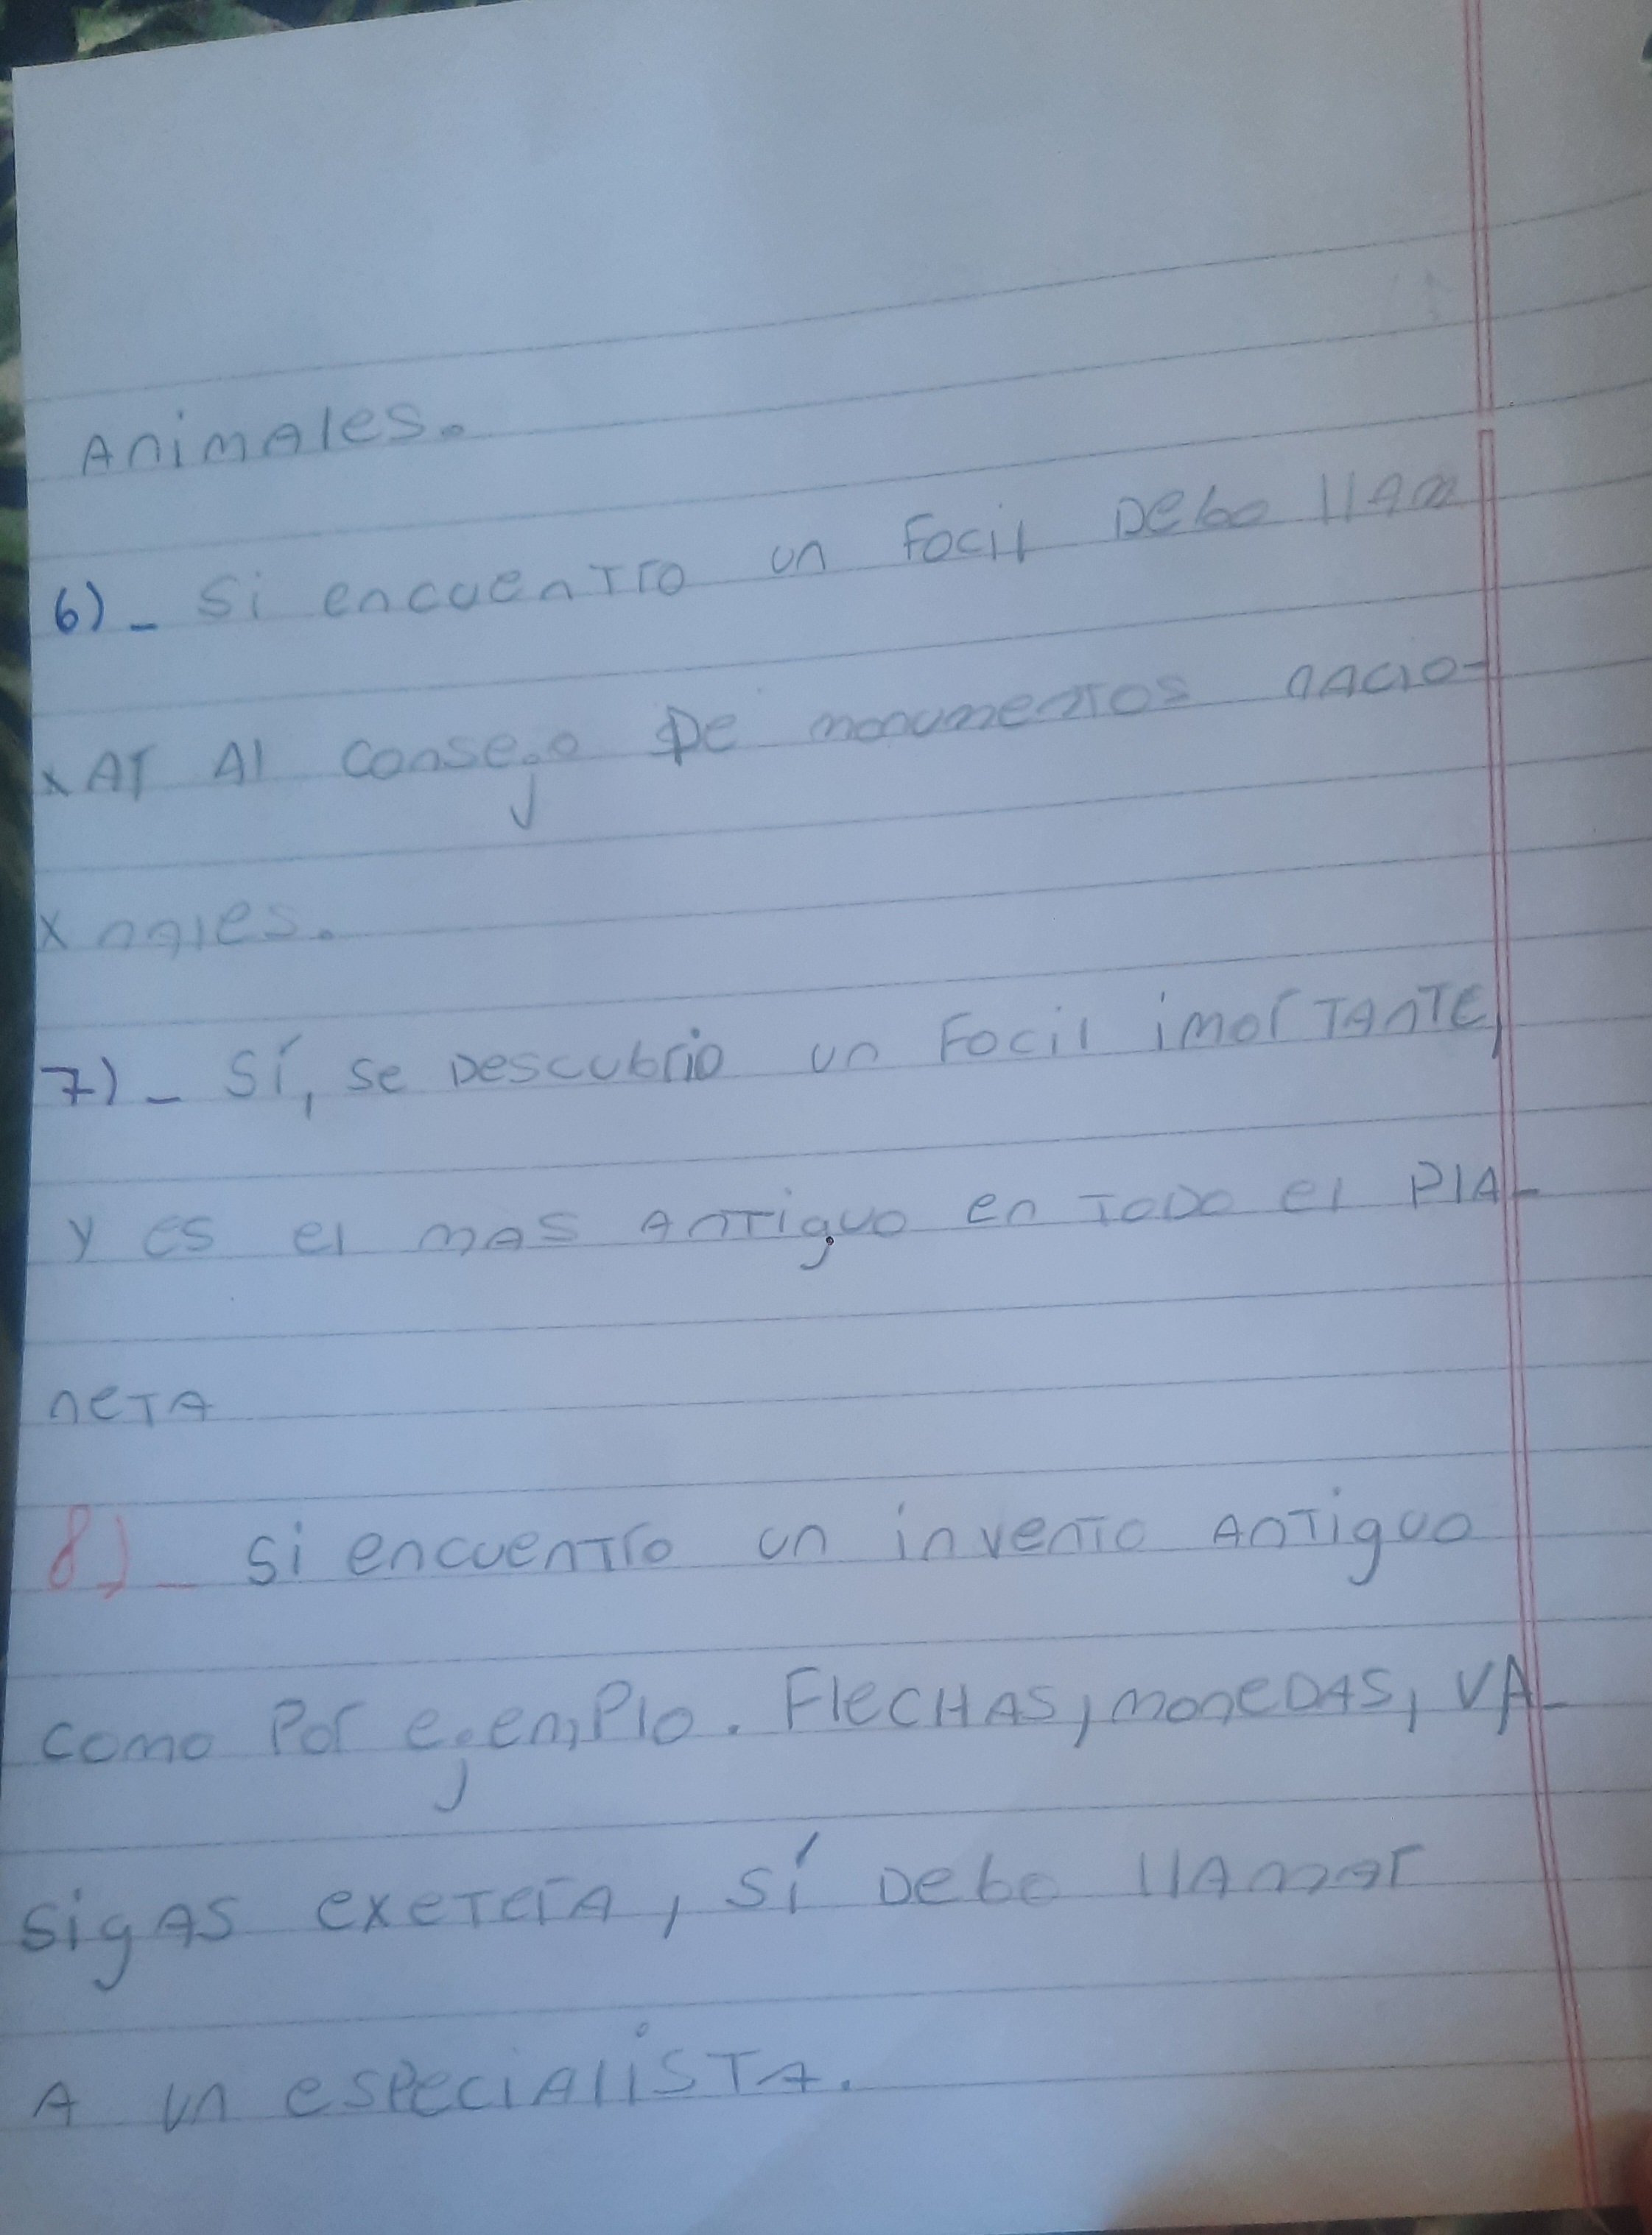 Animales.
6)_ Si encuentro un Focil Debo llam
x Ar Al consejo De monumentos nacio-
x nales.
7)_ Sí, se Descubrio un Focil imorTAnTe,
y es el mas AnTiguo en ToDo el PlA-
neTA
8)_ Si encuenTro un invenTo AnTiguo
como Por ejemplo. FleCHAS, moneDAS, VA-
sigAS exeTerA, sí Debo llAmar
A un especiAlisTA.